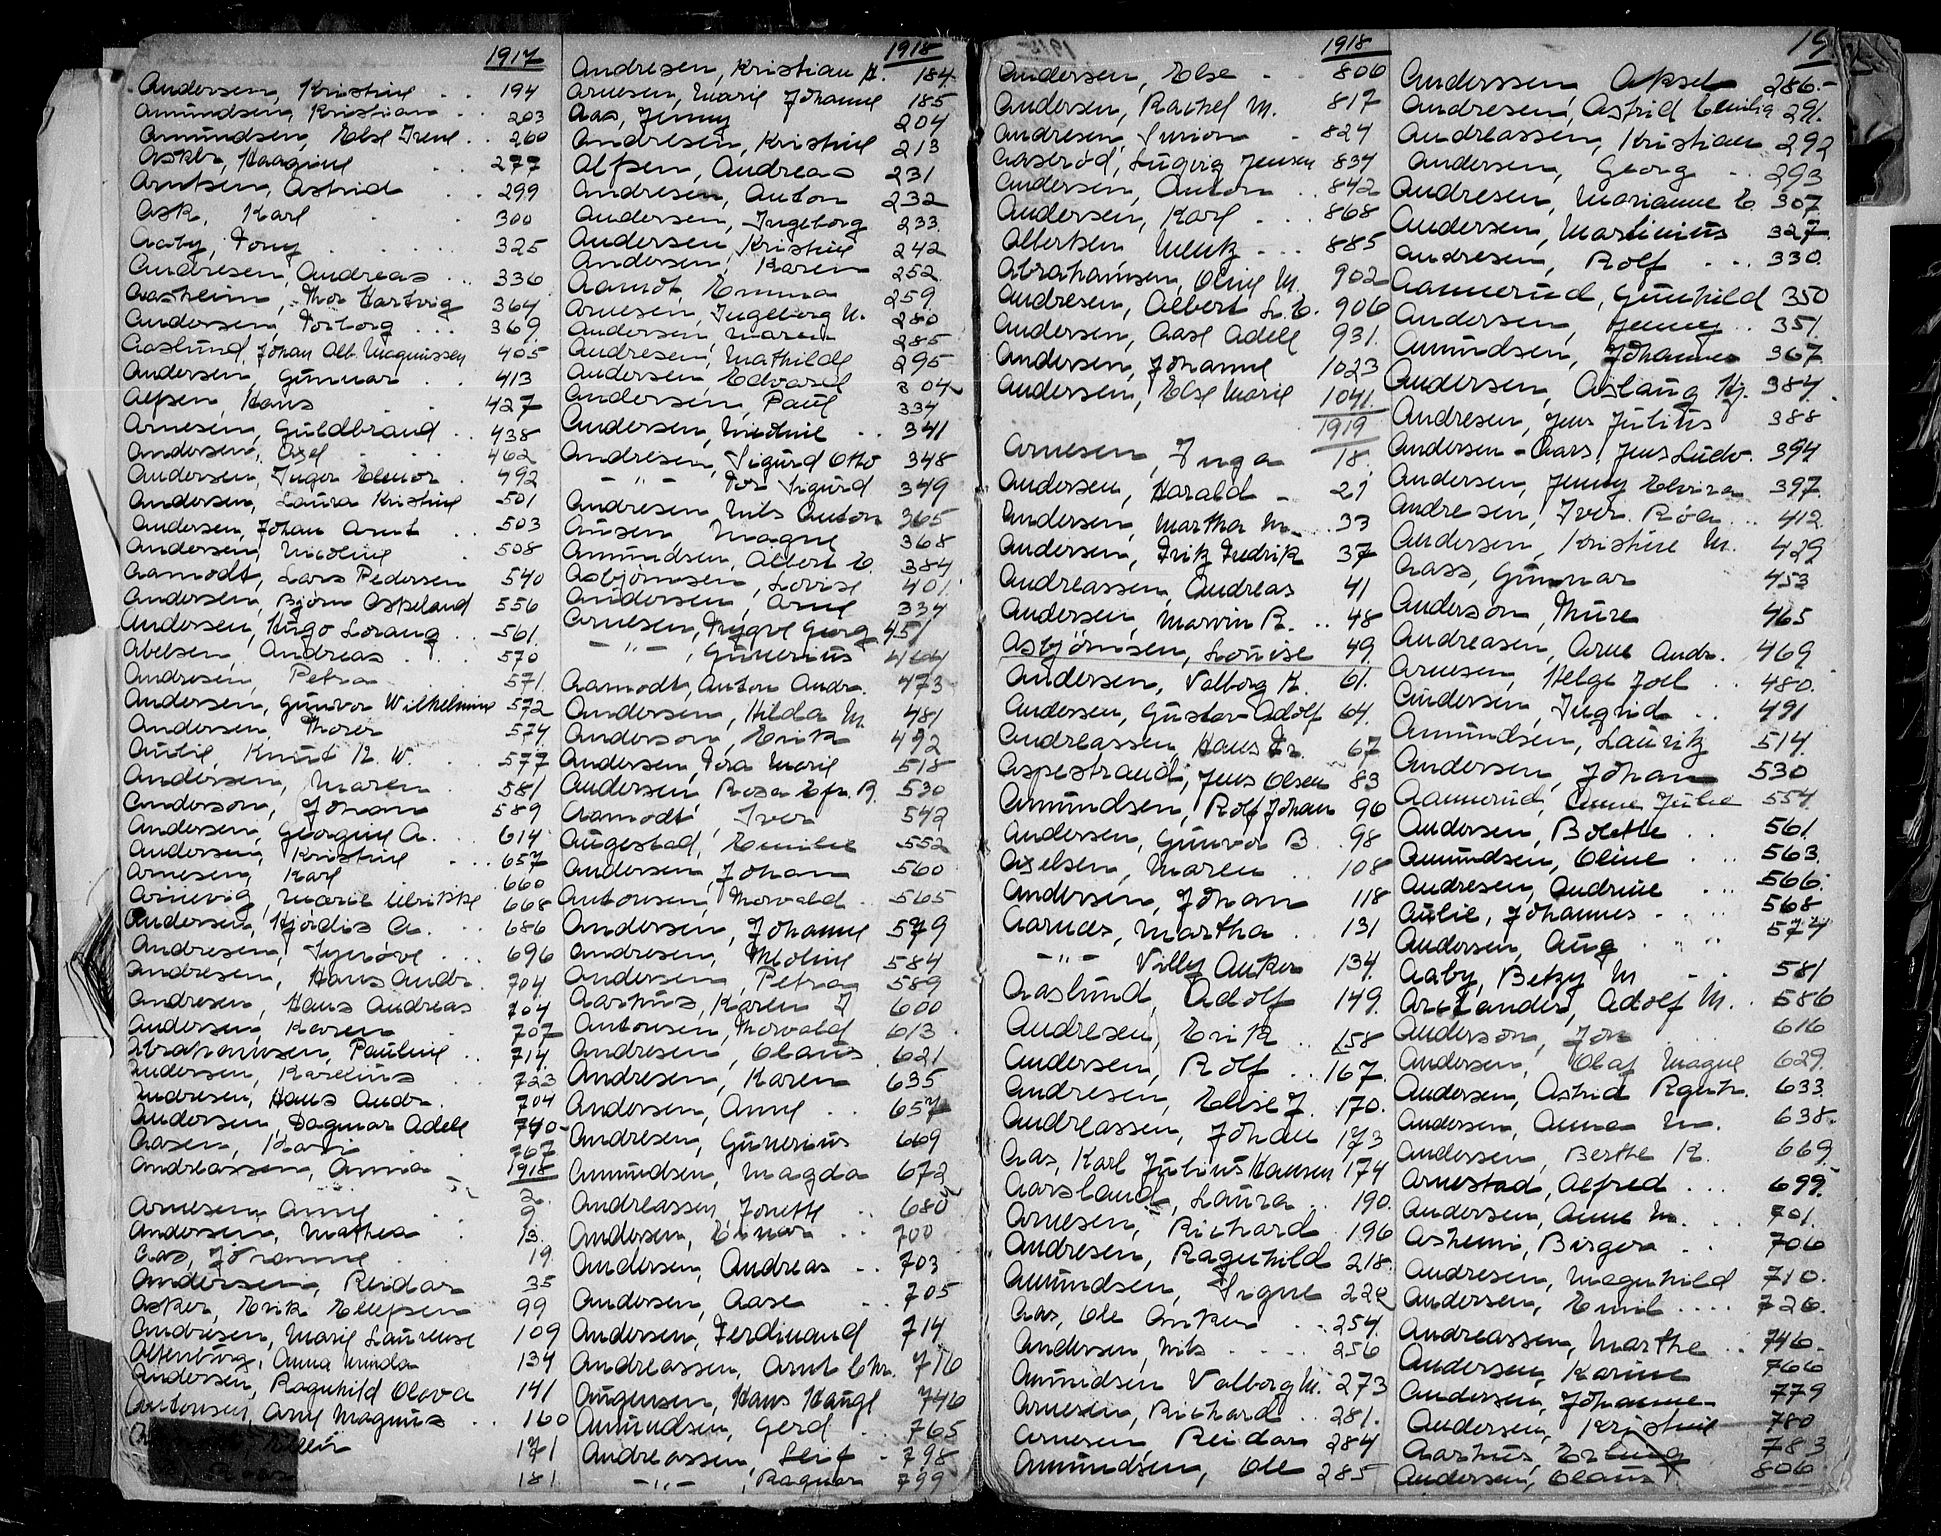 1917
Andersen, Kristine 194
Amundsen, Kristian 203
Amundsen, Else Irene 260
Asker, Haagine 277
Arntsen, Astrid 299
Ask, Karl 300
Aaby, Tony 325
Andresen, Andreas 336
Aasheim, Thor Hartvig 364
Andersen, Torborg 369
Aaslund, Johan Alb. Magnussen 405
Andersen, Gunnar 413
Alfsen, Hans 427
Arnesen, Guldbrand 438
Andersen, Axel 462
Andersen, Inger Elenor 492
Andersen, Laura Kristine 501
Andersen, Johan Arnt 503
Andersen, Nicoline 508
Aamodt, Lars Pedersen 540
Andersen, Bjørn Askeland 556
Andersen, Hugo Lorang 561
Abelsen, Andreas 570
Andresen, Petra 571
Andersen, Gunvor Wilhelmine 572
Andersen, Thorer 574
Aulie, Knut R. W. 577
Andersen, Maren 581
Anderson, Johan 589
Andersen, Georgine A. 614
Andersen, Kristine 657
Arnesen, Karl 660
Arnevig, Marie Ulrikke 668
Andersen, Hjördis A. 686
Andresen, Synnøve 696
Andresen, Hans Andr. 704
Andresen, Hans Andreas 704
Andersen, Karen 707
Abrahamsen, Pauline 714
Andersen, Karelius 723
Andresen, Hans Andr. 704
Andersen, Dagmar Adele 740
Aasen, Kari 767
1918
Andreassen, Anna 2
Arnesen, Anne 9
Andersen, Mathea 13
Aas, Johanne 19
Andersen, Reidar 35
Asker, Erik Ellefsen 99
Andresen, Marie Laurense 109
Altenburg, Anna Minda 134
Andersen, Ragnhild Olova 141
Antonsen, Arne Magnus 160
171
181
1918
Andresen, Kristian A. 184
Arnesen, Marie Johanne 185
Aas, Jenny 204
Andresen, Kristine 213
Alfsen, Andreas 231
Andresen, Anton 232
Andersen, Ingeborg 233
Andersen, Kristine 242
Andersen, Karen 252
Aamot, Emma 259
Arnesen, Ingeborg M. 280
Andersen, Maren 285
Andresen, Mathilde 295
Andersen, Edvard 304
Andersen, Paul 334
Andersen, Nicoline 341
Andresen, Sigurd Otto 348
- " - Tor Sigurd 349
Andresen, Nils Anton 365
Ausen, Magne 368
Amundsen, Albert E. 384
Asbjørnsen, Lovise 401
Andersen, Arne 334
Arnesen, Trygve Georg 451
- " - , Gunerius 464
Aamodt, Anton Andr. 473
Andersen, Hilda M 481
Anderson, Erik 492
Andersen, Tora Marie 518
Andersen, Rosa 530
Aamodt, Iver 542
Augestad, Emilie 552
Andersen, Johan 560
Antonsen, Thorvald 565
Andersen, Johanne 579
Andresen, Nicoline 584
Andersen, Petra 589
Aarhus, Karen J 600
Antonsen, Thorvald 613
Andresen, Olaus 621
Andresen, Karen 635
Andersen, Anne 657
Andresen, Gunerius 669
Amundsen, Magda 672
Andreassen, Jonette 680
Andersen, Einar 700
Andersen, Andreas 703
Andersen, Aase 705
Andersen, Ferdinand 714
Andreassen, Arnt Chr. 716
Augensen, Hans Hauge 746
Amundsen, Gerd 765
Andreassen, Leif 798
- " - , Ragnar 799
1918
Andersen, Else 806
Andersen, Rachel M. 817
Andresen, Simon 824
Aaseröd, Ludvig Jensen 834
Andersen, Anton 842
Andersen, Karl 868
Albertsen Mentz 885
Abrahamsen, Oline M. 902
Andresen, Albert L. E. 906
Andersen, Aase Adele 931
Andersen, Johanne 1023
Andersen, Else Marie 1041
1919
Arnesen, Inga 18
Andersen, Harald 21
Andersen, Martha M. 33
Andersen, Fritz Fredrik 37
Andreassen, Andreas 41
Andersen, Marvin R. 48
Asbjörnsen, Louise 49
Andersen, Valborg K. 61
Andersen, Gustav Adolf 64
Andreassen, Hans Fr. 67
Aspestrand, Jens Olsen 83
Amundsen, Rolf Johan 96
Andersen, Gunvor B. 98
Axelsen, Maren 108
Andersen, Johan 118
Aarnes, Martha 131
- " - Villy Anker 134
Aaslund, Adolf 149
Andresen, Erik 158
Andersen, Rolf 167
Andresen, Elise J. 170
Andreassen, Johan 173
Aas, Karl Julius Hansen 174
Aarsland, Laura 190
Arnesen, Richard 196
Andresen, Ragnhild 218
Amundsen, Signe 222
Aas, Ole Anker 254
Andersen, Nils 256
Amundsen Valborg M. 273
Arnesen, Richard 281
Arnesen, Reidar 284
Amundsen, Ole 285
19
Anderssen, Aksel 286
Andresen, Astrid Emilia 291
Andreassen, Kristian 292
Andersen, Georg 293
Andresen, Marianne E 307
Andersen, Martinius 327
Andresen, Rolf 330
Aannerud, Gunhild 350
Andersen, Jenny 351
Amundsen, Johannes 367
Andersen, Aslaug Hj. 384
Andresen, Jens Julius 388
Andersen - Aars, Jens Ludv. 394
Andersen, Jenny Elvira 397
Andresen, Iver Röa 412
Andersen, Kristine M. 429
Aass, Gunnar 453
Anderson, Thure 465
Andreasen, Arne Andr. 469
Arnesen, Helge Joel 480
Andersen, Ingrid 491
Amundsen, Lauritz 514
Andersen, Johan 530
Aannerud, Anne Julie 554
Andersen, Bolette 561
Amundsen, Oline 563
Andresen, Andrine 566
Aulie, Johannes 568
Andersen, Aug 574
Aaby, Betzy M 581
Arctander, Adolf M. 586
Anderson, Jon 616
Andersen, Olaf Magne 629
Andersen, Astrid 633
Andersen, Anna M. 638
Andersen, Berthe K. 669
Arnestad, Alfred 699
Andersen, Anne M. 701
Asheim, Birger 706
Andresen, Magnhild 710
Andersen, Emil 726
Andreassen, Marthe 746
Andersen, Karine 766
Andersen, Johanne 779
Andersen, Kristine 780
Aarhus, Erling 783
Andersen, Olaus 806